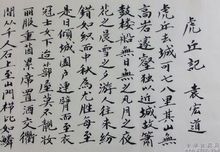 虎丘記 袁宏道
虎丘去城可七八里其山無
高岩邃壑獨以近城故簫
鼓樓船無日無之凡月之夜
花之晨雪之夕游人往來紛
錯如织而中秋為尤勝每至
是日傾城闔户連臂而至衣
冠士女下迨蔀屋莫不靓妆
麗服重茵累席置酒交衢
間從千人石上至山門櫛比如鱗